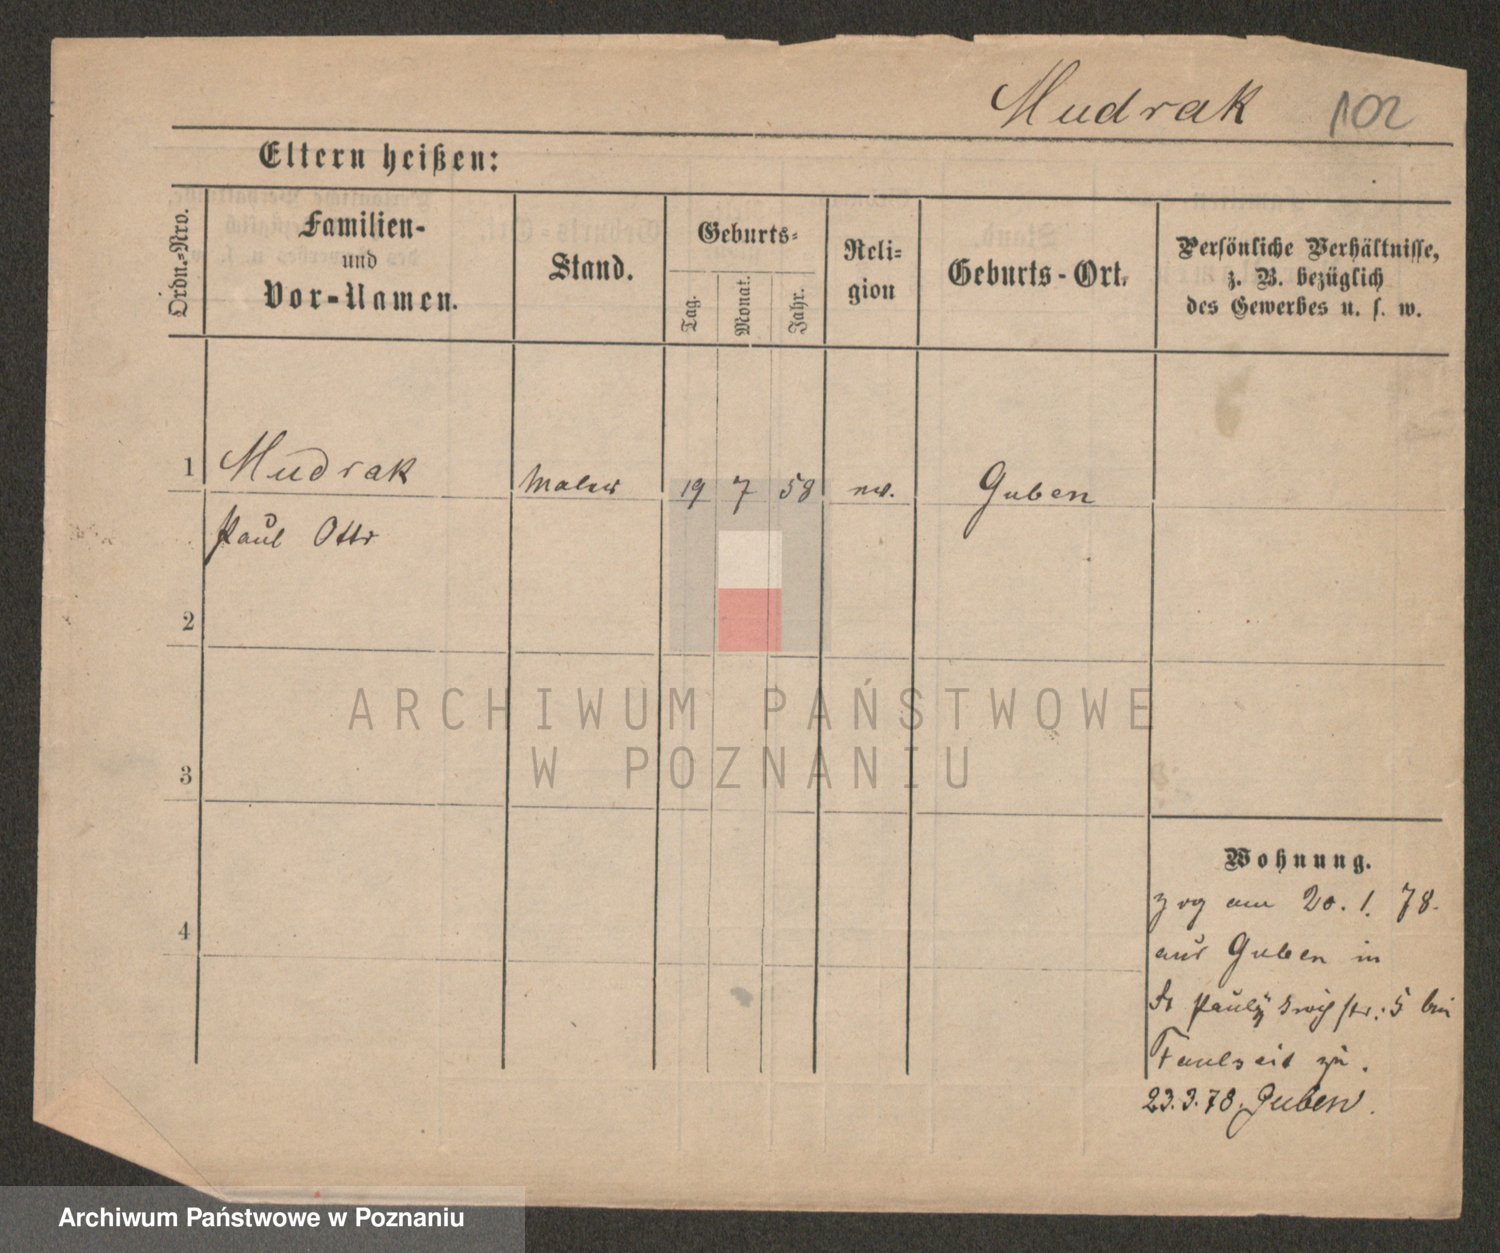 Mudrak 102
Eltern heißen:
Ordn.-Nro.
Familien-
und
Vor-Namen.
Stand.
Geburts-
Tag.
Monat.
Jahr.
Reli-
gion
Geburts-Ort.
Persönliche Verhältnisse,
z. B. bezüglich
des Gewerbes u. s. w.
1 Mudrak Maler 19 7 58 ev. Guben
Paul Otto
2
ARCHIWUM PAŃSTWOWE
W POZNANIU
3
Wohnung.
zog am 20. 1. 78.
4
aus Guben in
St Pauli str. 5 bei
zu.
23. 3. 78. Guben.
Archiwum Państwowe w Poznaniu